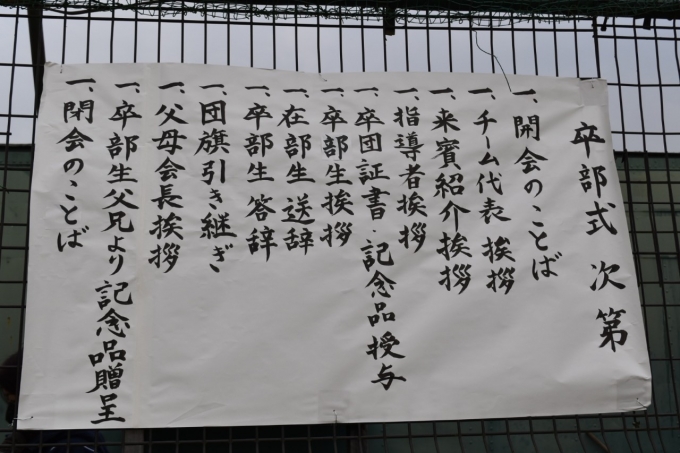 卒部式 次第
一、開会のことば
一、チーム代表挨拶
一、来賓紹介挨拶
一、指導者挨拶
一、卒団証書・記念品授与
一、卒部生挨拶
一、在部生送辞
一、卒部生答辞
一、団旗引き継ぎ
一、父母会長挨拶
一、卒部生父兄より記念品贈呈
一、閉会のことば